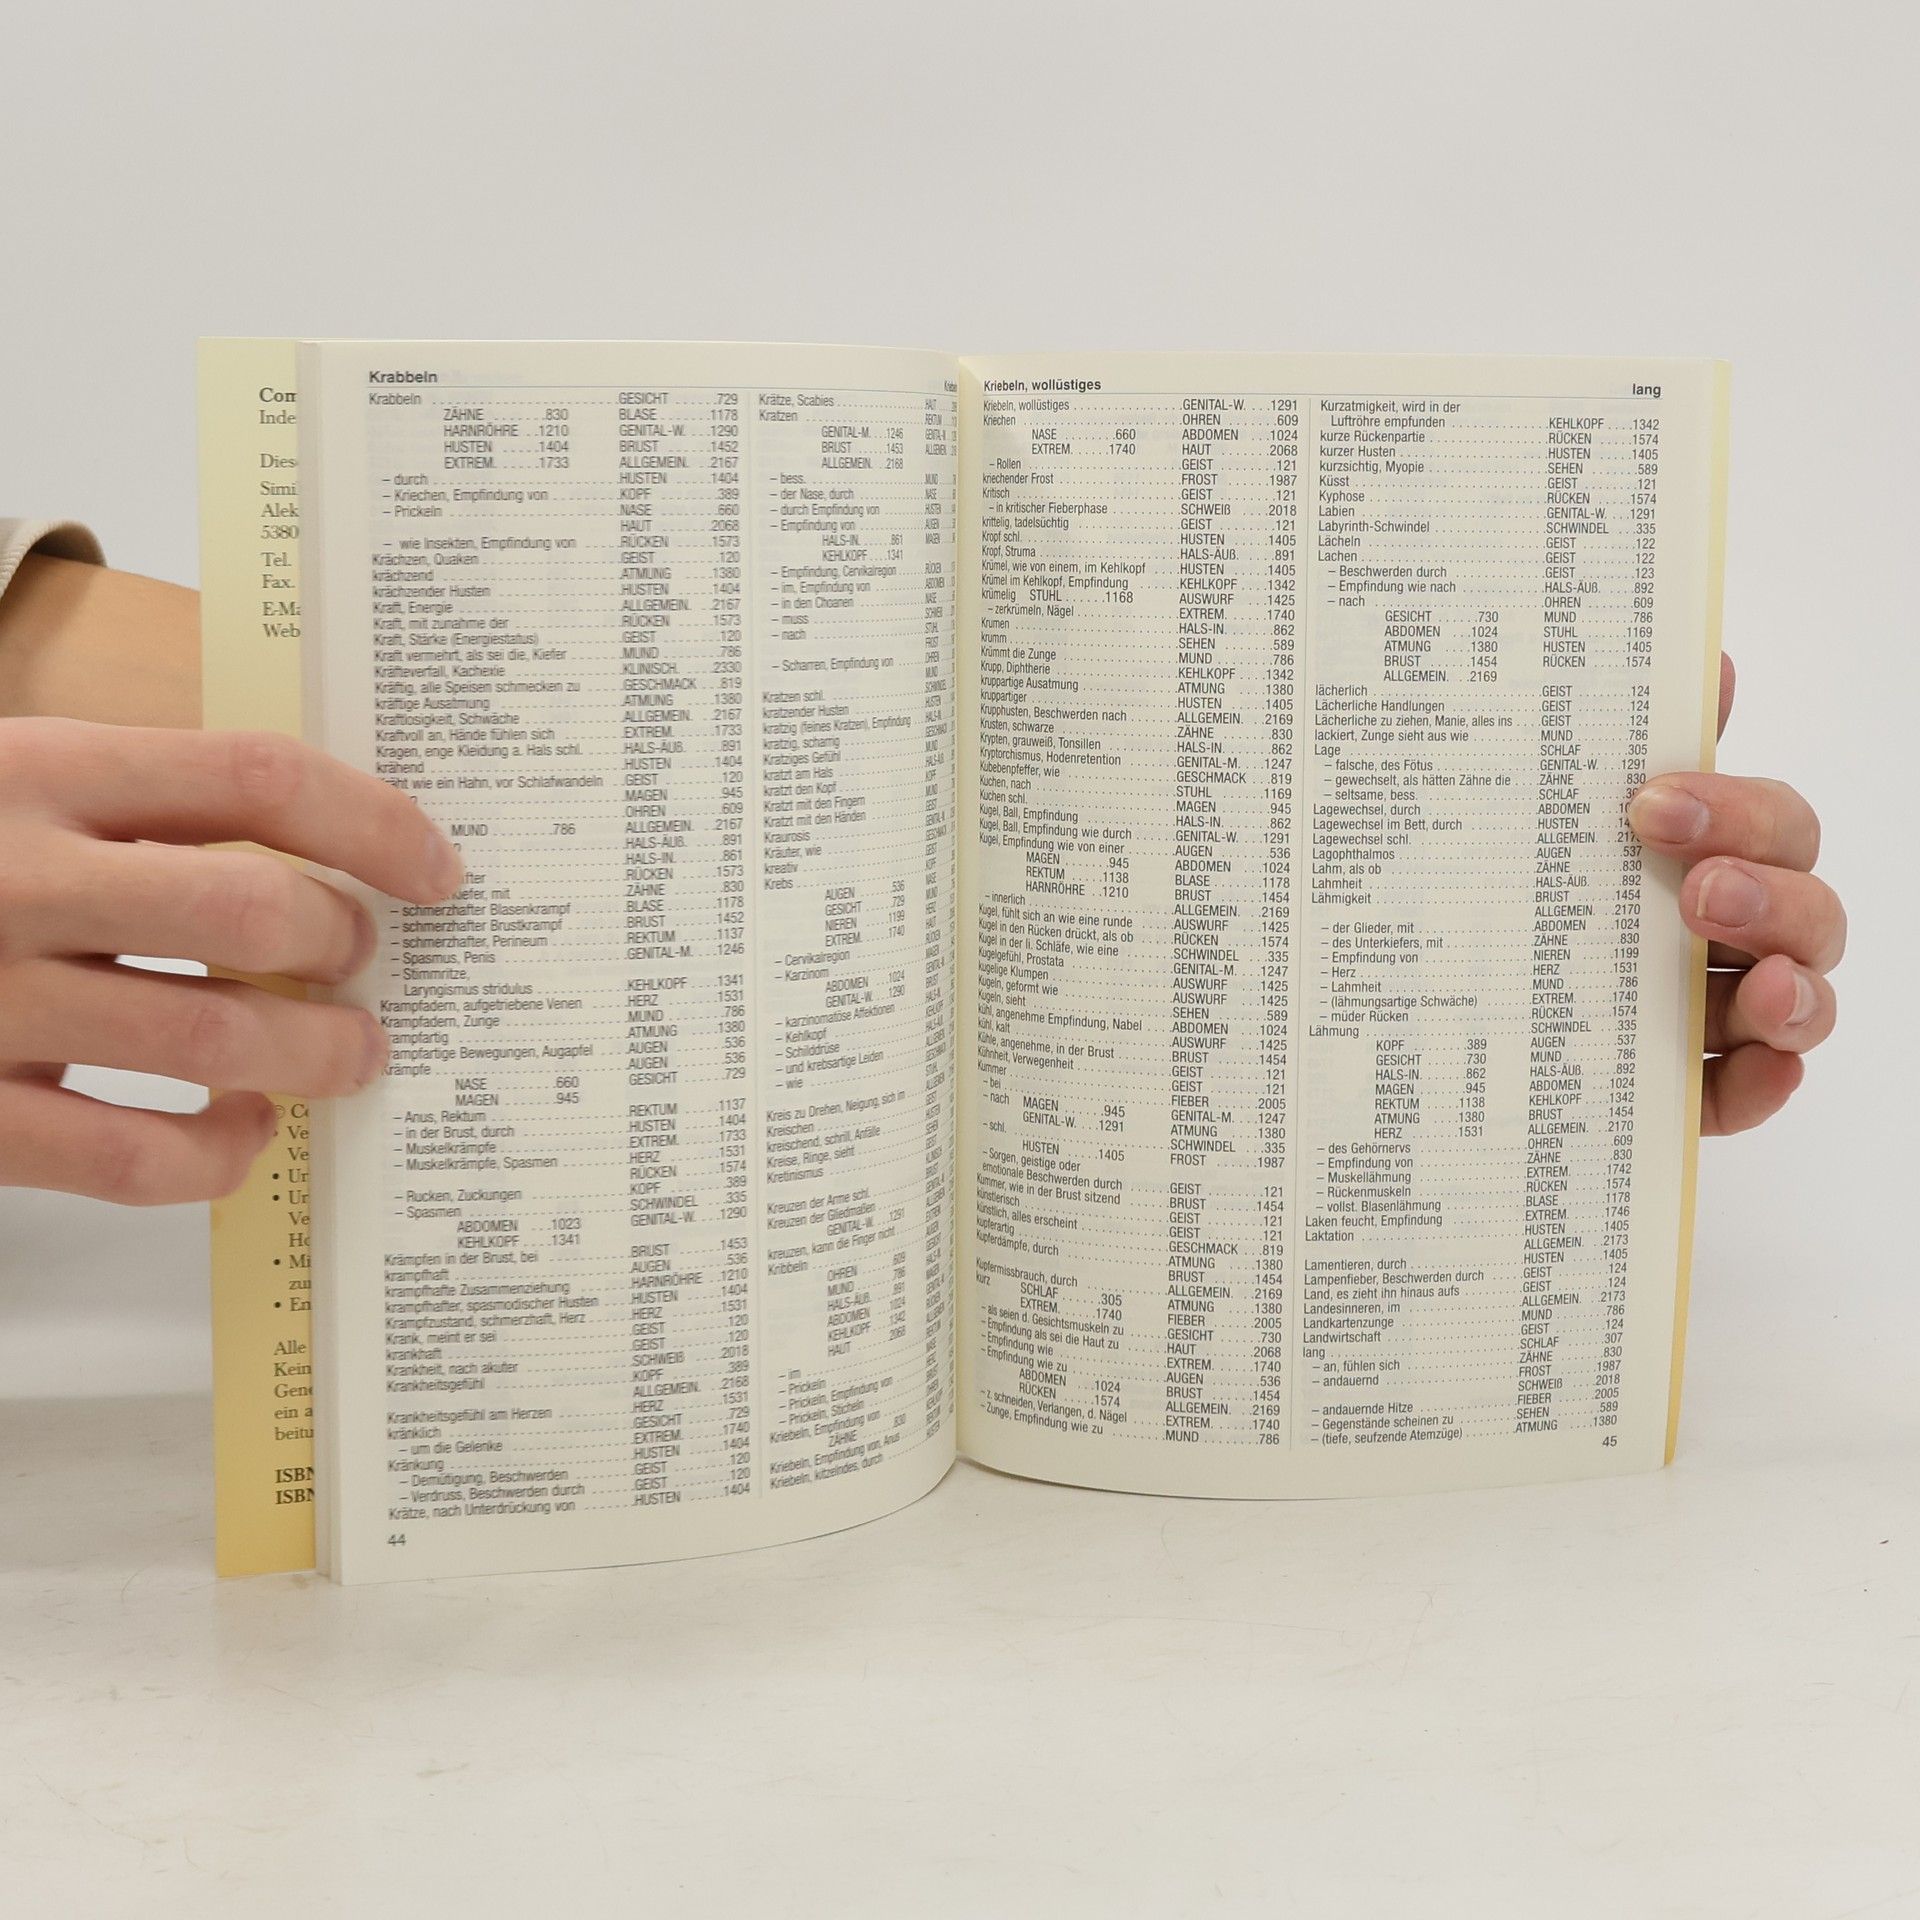 Com
Inde
Dies
Simil
Alek
5380
Tel.
Fax.
E-Ma
Web
© Co
• Ve
Ve
• Ur
• Ur
Ve
Ho
• Mi
zur
• En
Alle
Kein
Gene
ein a
beitu
ISBN
ISBN
Krabbeln
Krabbeln ........ GESICHT ......729
ZÄHNE ........830 BLASE ........1178
HARNRÖHRE ..1210 GENITAL-W. ...1290
HUSTEN ......1404 BRUST ........1452
EXTREM. ......1733 ALLGEMEIN. ...2167
– durch ........ HUSTEN ......1404
– Kriechen, Empfindung von ........ KOPF ........389
– Prickeln ........ NASE ........660
HAUT ........2068
– wie Insekten, Empfindung von ...... RÜCKEN ......1573
Krächzen, Quaken ........ GEIST ........120
krächzend ........ ATMUNG ......1380
krächzender Husten ........ HUSTEN ......1404
Kraft, Energie ........ ALLGEMEIN. ...2167
Kraft, mit zunahme der ........ RÜCKEN ......1573
Kraft, Stärke (Energiestatus) ........ GEIST ........120
Kraft vermehrt, als sei die, Kiefer ...... MUND ........786
Kräfteverfall, Kachexie ........ KLINISCH. ....2330
Kräftig, alle Speisen schmecken zu ..... GESCHMACK ...819
kräftige Ausatmung ........ ATMUNG ......1380
Kraftlosigkeit, Schwäche ........ ALLGEMEIN. ...2167
Kraftvoll an, Hände fühlen sich ...... EXTREM. ......1733
Kragen, enge Kleidung a. Hals schl. .... HALS-ÄUß. ....891
krähend ........ HUSTEN ......1404
wie ein Hahn, vor Schlafwandeln GEIST ........120
MAGEN ......945
OHREN ......609
MUND ........786 ALLGEMEIN. ...2167
HALS-ÄUß. ....891
HALS-IN. ......861
RÜCKEN ......1573
mit ........ ZÄHNE ........830
– schmerzhafter Blasenkrampf ...... BLASE ........1178
– schmerzhafter Brustkrampf ...... BRUST ........1452
– schmerzhafter, Perineum ...... REKTUM ......1137
– Spasmus, Penis ........ GENITAL-M. ...1246
– Stimmritze,
Laryngismus stridulus ........ KEHLKOPF ....1341
Krampfadern, aufgetriebene Venen .... HERZ ........1531
Krampfadern, Zunge ........ MUND ........786
rampfartig ........ ATMUNG ......1380
rampfartige Bewegungen, Augapfel .... AUGEN ......536
Krämpfe ........ AUGEN ......536
NASE ........660 GESICHT ......729
MAGEN ......945
– Anus, Rektum ........ REKTUM ......1137
– in der Brust, durch ........ HUSTEN ......1404
– Muskelkrämpfe ........ EXTREM. ......1733
– Muskelkrämpfe, Spasmen ...... HERZ ........1531
RÜCKEN ......1574
– Rucken, Zuckungen ........ KOPF ........389
– Spasmen ........ SCHWINDEL ...335
ABDOMEN ....1023 GENITAL-W. ...1290
KEHLKOPF ....1341
Krämpfen in der Brust, bei ...... BRUST ......1453
krampfhaft ........ AUGEN ......536
krampfhafte Zusammenziehung ...... HARNRÖHRE ..1210
krampfhafter, spasmodischer Husten .... HUSTEN ......1404
Krampfzustand, schmerzhaft, Herz .... HERZ ........1531
Krank, meint er sei ........ GEIST ........120
krankhaft ........ GEIST ........120
Krankheit, nach akuter ........ SCHWEIß ......2018
Krankheitsgefühl ........ KOPF ........389
ALLGEMEIN. ...2168
Krankheitsgefühl am Herzen ...... HERZ ........1531
kränklich ........ GESICHT ......729
– um die Gelenke ........ EXTREM. ......1740
Kränkung ........ HUSTEN ......1404
– Demütigung, Beschwerden ...... GEIST ........120
– Verdruss, Beschwerden durch ...... GEIST ........120
Krätze, nach Unterdrückung von ...... HUSTEN ......1404
44
Krätze, Scabies ........ HAUT
Kratzen ........ REKTUM
GENITAL-M. ...1246
BRUST ......1453
ALLGEMEIN. ..2168
– bess. ........ MUND
– der Nase, durch ........ NASE
– durch Empfindung von ........ HUSTEN
– Empfindung von ........ AUGEN
HALS-IN. ......861 MAGEN
KEHLKOPF ...1341
– Empfindung, Cervikalregion ...... RÜCKEN
– im, Empfindung von ........ ABDOMEN
– in den Choanen ........ NASE
– muss
– nach ........ STUHL
– Scharren, Empfindung von
Kratzen schl.
kratzender Husten ........ HUSTEN
kratzig (feines Kratzen), Empfindung
kratzig, scharrig
Kratziges Gefühl
kratzt am Hals
kratzt den Kopf ........ KOPF
Kratzt mit den Fingern
Kratzt mit den Händen
Kraurosis
Kräuter, wie
kreativ
Krebs
AUGEN ......536
GESICHT ......729
NIEREN ......1199
EXTREM. ......1740
– Cervikalregion
– Karzinom
ABDOMEN ....1024
GENITAL-W. ...1290
– karzinomatöse Affektionen
– Kehlkopf
– Schilddrüse
– und krebsartige Leiden
– wie
Kreis zu Drehen, Neigung, sich im
Kreischen
kreischend, schrill, Anfälle
Kreise, Ringe, sieht
Kretinismus
Kreuzen der Arme schl.
Kreuzen der Gliedmaßen
GENITAL-W. ...1291
kreuzen, kann die Finger nicht
Kribbeln
OHREN ......609
MUND ........786
HALS-ÄUß. ....891
ABDOMEN ....1024
KEHLKOPF ...1342
HAUT ........2068
– im
– Prickeln
– Prickeln, Empfindung von
– Prickeln, Sticheln
Kriebeln, Empfindung von
ZÄHNE ........830
Kriebeln, Empfindung von, Anus
Kriebeln, kitzelndes, durch ........ HUSTEN
Kriebeln, wollüstiges lang
Kriebeln, wollüstiges ........ GENITAL-W. ...1291
Kriechen ........ OHREN ......609
NASE ........660 ABDOMEN ....1024
EXTREM. ......1740 HAUT ........2068
– Rollen ........ GEIST ........121
kriechender Frost ........ FROST ......1987
Kritisch ........ GEIST ........121
– in kritischer Fieberphase ...... SCHWEIß ......2018
krittelig, tadelsüchtig ........ GEIST ........121
Kropf schl. ........ HUSTEN ......1405
Kropf, Struma ........ HALS-ÄUß. ....891
Krümel, wie von einem, im Kehlkopf .... HUSTEN ......1405
Krümel im Kehlkopf, Empfindung .... KEHLKOPF ....1342
krümelig STUHL ......1168 AUSWURF ....1425
– zerkrümeln, Nägel ........ EXTREM. ......1740
Krumen ........ HALS-IN. ......862
krumm ........ SEHEN ......589
Krümmt die Zunge ........ MUND ........786
Krupp, Diphtherie ........ KEHLKOPF ....1342
kruppartige Ausatmung ........ ATMUNG ......1380
kruppartiger ........ HUSTEN ......1405
Krupphusten, Beschwerden nach .... ALLGEMEIN. ...2169
Krusten, schwarze ........ ZÄHNE ......830
Krypten, grauweiß, Tonsillen ...... HALS-IN. ......862
Kryptorchismus, Hodenretention .... GENITAL-M. ...1247
Kubebenpfeffer, wie ........ GESCHMACK ...819
Kuchen, nach ........ STUHL ......1169
Kuchen schl. ........ MAGEN ......945
Kugel, Ball, Empfindung ........ HALS-IN. ......862
Kugel, Ball, Empfindung wie durch .... GENITAL-W. ...1291
Kugel, Empfindung wie von einer .... AUGEN ......536
MAGEN ......945 ABDOMEN ....1024
REKTUM ......1138 BLASE ......1178
HARNRÖHRE ..1210 BRUST ......1454
– innerlich ........ ALLGEMEIN. ...2169
Kugel, fühlt sich an wie eine runde .... AUSWURF ....1425
Kugel in den Rücken drückt, als ob .... RÜCKEN ......1574
Kugel in der li. Schläfe, wie eine .... SCHWINDEL ...335
Kugelgefühl, Prostata ........ GENITAL-M. ...1247
kugelige Klumpen ........ AUSWURF ....1425
Kugeln, geformt wie ........ AUSWURF ....1425
Kugeln, sieht ........ SEHEN ......589
kühl, angenehme Empfindung, Nabel .. ABDOMEN ....1024
kühl, kalt ........ AUSWURF ....1425
Kühle, angenehme, in der Brust .... BRUST ......1454
Kühnheit, Verwegenheit ........ GEIST ......121
Kummer ........ GEIST ......121
– bei ........ FIEBER ......2005
– nach MAGEN ......945 GENITAL-M. ...1247
GENITAL-W. ..1291 ATMUNG ......1380
– schl. ........ SCHWINDEL ...335
HUSTEN ......1405 FROST ......1987
– Sorgen, geistige oder
emotionale Beschwerden durch .... GEIST ......121
Kummer, wie in der Brust sitzend .... BRUST ......1454
künstlerisch ........ GEIST ......121
künstlich, alles erscheint ...... GEIST ......121
kupferartig ........ GESCHMACK ...819
Kupferdämpfe, durch ........ ATMUNG ......1380
BRUST ......1454
Kupfermissbrauch, durch ........ ALLGEMEIN. ...2169
kurz ........ ATMUNG ......1380
SCHLAF ......305 FIEBER ......2005
EXTREM. ......1740
– als seien d. Gesichtsmuskeln zu .... GESICHT ......730
– Empfindung als sei die Haut zu .... HAUT ......2068
– Empfindung wie ........ EXTREM. ......1740
– Empfindung wie zu ........ AUGEN ......536
ABDOMEN ....1024 BRUST ......1454
RÜCKEN ......1574 ALLGEMEIN. ...2169
– z. schneiden, Verlangen, d. Nägel .... EXTREM. ......1740
– Zunge, Empfindung wie zu ...... MUND ........786
Kurzatmigkeit, wird in der
Luftröhre empfunden ........ KEHLKOPF ....1342
kurze Rückenpartie ........ RÜCKEN ......1574
kurzer Husten ........ HUSTEN ......1405
kurzsichtig, Myopie ........ SEHEN ......589
Küsst ........ GEIST ........121
Kyphose ........ RÜCKEN ......1574
Labien ........ GENITAL-W. ...1291
Labyrinth-Schwindel ........ SCHWINDEL ...335
Lächeln ........ GEIST ........122
Lachen ........ GEIST ........122
– Beschwerden durch ........ GEIST ........123
– Empfindung wie nach ........ HALS-ÄUß. ....892
– nach ........ OHREN ......609
GESICHT ......730 MUND ........786
ABDOMEN ....1024 STUHL ......1169
ATMUNG ......1380 HUSTEN ......1405
BRUST ......1454 RÜCKEN ......1574
ALLGEMEIN. ..2169
lächerlich ........ GEIST ........124
Lächerliche Handlungen ........ GEIST ........124
Lächerliche zu ziehen, Manie, alles ins .... GEIST ........124
lackiert, Zunge sieht aus wie ...... MUND ........786
Lage ........ SCHLAF ......305
– falsche, des Fötus ........ GENITAL-W. ...1291
– gewechselt, als hätten Zähne die .... ZÄHNE ......830
– seltsame, bess. ........ SCHLAF
Lagewechsel, durch ........ ABDOMEN
Lagewechsel im Bett, durch ...... HUSTEN
Lagewechsel schl. ........ ALLGEMEIN.
Lagophthalmos ........ AUGEN ......537
Lahm, als ob ........ ZÄHNE ......830
Lahmheit ........ HALS-ÄUß. ....892
Lähmigkeit ........ BRUST ......1454
ALLGEMEIN. ...2170
– der Glieder, mit ........ ABDOMEN ....1024
– des Unterkiefers, mit ........ ZÄHNE ......830
– Empfindung von ........ NIEREN ......1199
– Herz ........ HERZ ......1531
– Lahmheit ........ MUND ......786
– (lähmungsartige Schwäche) ...... EXTREM. ......1740
– müder Rücken ........ RÜCKEN ......1574
Lähmung ........ SCHWINDEL ...335
KOPF ........389 AUGEN ......537
GESICHT ......730 MUND ........786
HALS-IN. ......862 HALS-ÄUß. ....892
MAGEN ......945 ABDOMEN ....1024
REKTUM ......1138 KEHLKOPF ....1342
ATMUNG ......1380 BRUST ......1454
HERZ ......1531 ALLGEMEIN. ...2170
– des Gehörnervs ........ OHREN ......609
– Empfindung von ........ ZÄHNE ......830
– Muskellähmung ........ EXTREM. ......1742
– Rückenmuskeln ........ RÜCKEN ......1574
– vollst. Blasenlähmung ........ BLASE ......1178
Laken feucht, Empfindung ...... EXTREM. ......1746
Laktation ........ HUSTEN ......1405
ALLGEMEIN. ...2173
Lamentieren, durch ........ HUSTEN ......1405
Lampenfieber, Beschwerden durch .... GEIST ......124
Land, es zieht ihn hinaus aufs ...... GEIST ......124
Landesinneren, im ........ ALLGEMEIN. ...2173
Landkartenzunge ........ MUND ......786
Landwirtschaft ........ GEIST ......124
lang ........ SCHLAF ......307
– an, fühlen sich ........ ZÄHNE ......830
– andauernd ........ FROST ......1987
SCHWEIß ....2018
– andauernde Hitze ........ FIEBER ......2005
– Gegenstände scheinen zu ...... SEHEN ......589
– (tiefe, seufzende Atemzüge) ...... ATMUNG ......1380
45